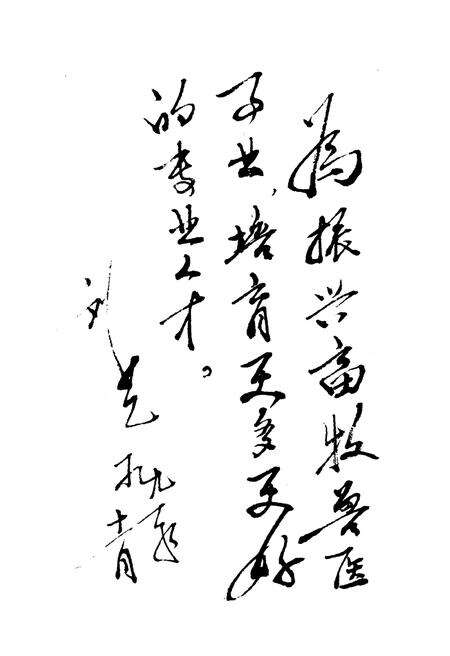 為振兴畜牧兽医
事业,培育更多更好
的专业人才。
刘
十一月